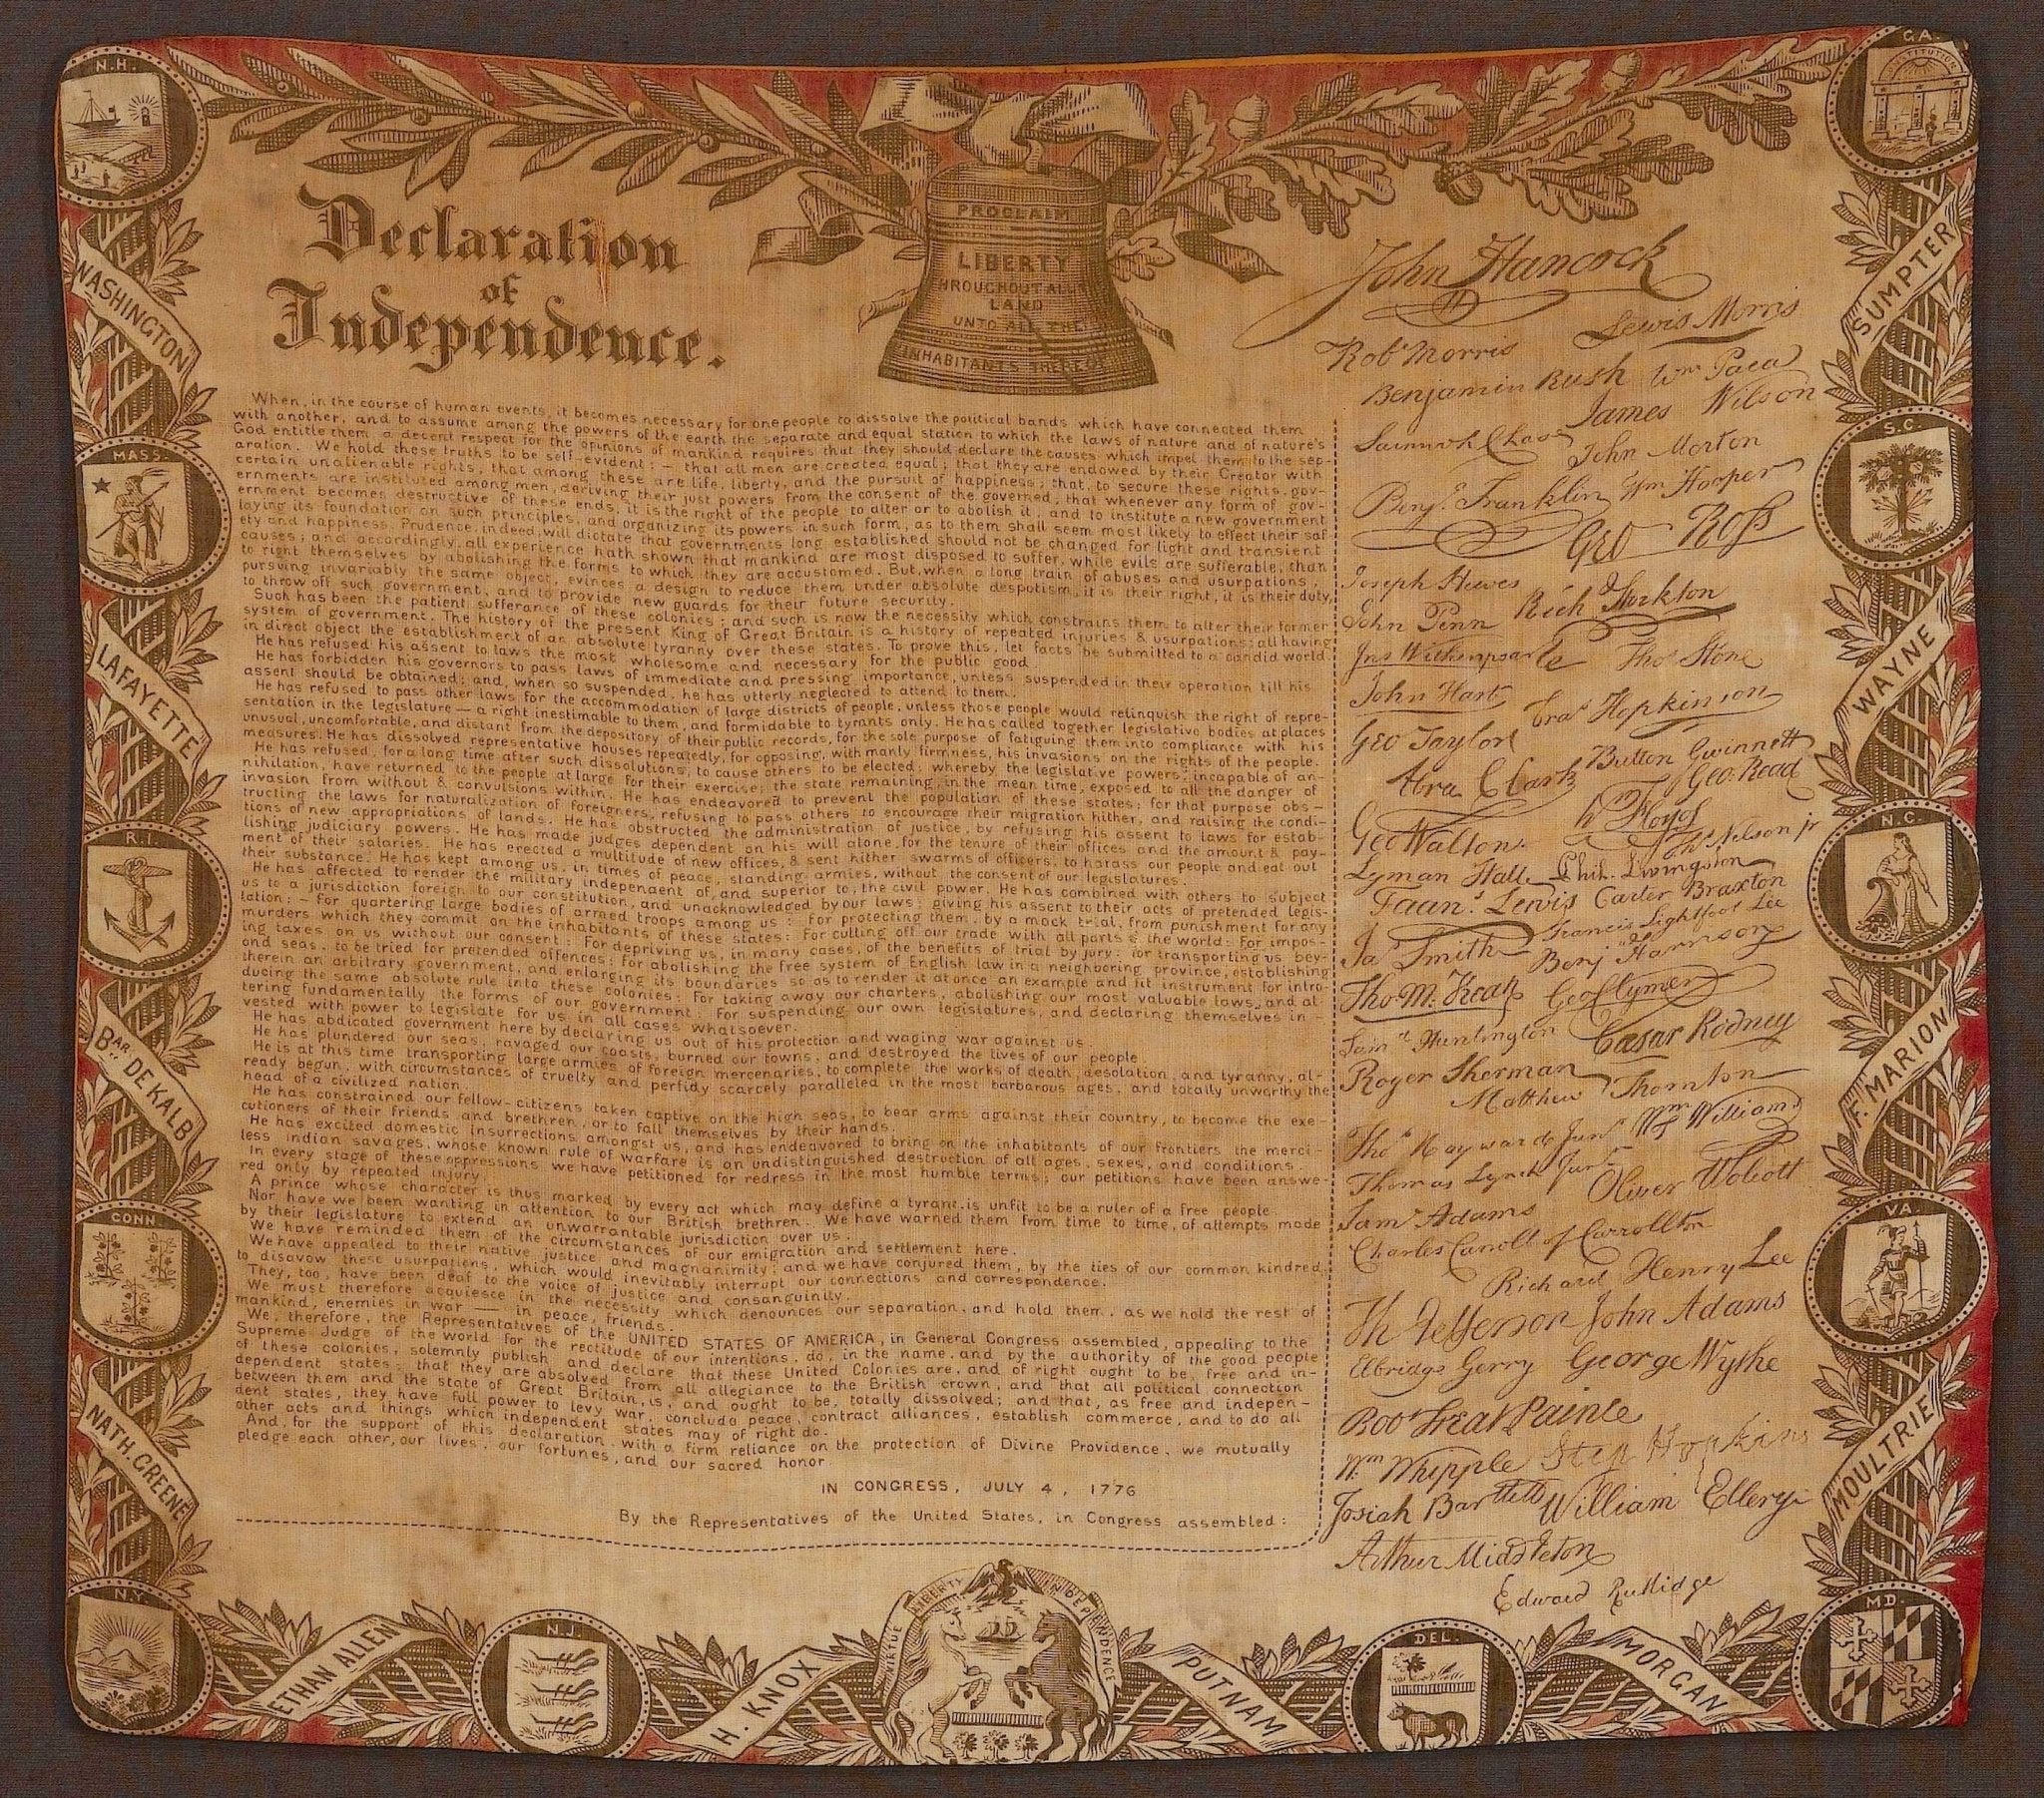 N.H.
GA.
CONSTITUTION
PROCLAIM
LIBERTY
THROUGHOUT ALL
LAND
UNTO ALL THE
INHABITANTS THEREOF
Declaration
of
Independence.
When, in the course of human events, it becomes necessary for one people to dissolve the political bands which have connected them
with another, and to assume among the powers of the earth the separate and equal station to which the laws of nature and of nature's
God entitle them, a decent respect for the opinions of mankind requires that they should declare the causes which impel them to the sep-
aration. We hold these truths to be self-evident: — that all men are created equal; that they are endowed by their Creator with
certain unalienable rights, that among these are life, liberty, and the pursuit of happiness; that, to secure these rights, gov-
ernments are instituted among men, deriving their just powers from the consent of the governed; that whenever any form of gov-
ernment becomes destructive of these ends, it is the right of the people to alter or to abolish it, and to institute a new government
laying its foundation on such principles, and organizing its powers in such form, as to them shall seem most likely to effect their saf
ety and happiness. Prudence, indeed, will dictate that governments long established should not be changed for light and transient
causes; and accordingly, all experience hath shown that mankind are most disposed to suffer, while evils are sufferable, than
to right themselves by abolishing the forms to which they are accustomed. But, when a long train of abuses and usurpations,
pursuing invariably the same object, evinces a design to reduce them under absolute despotism, it is their right, it is their duty,
to throw off such government, and to provide new guards for their future security.
Such has been the patient sufferance of these colonies; and such is now the necessity which constrains them to alter their former
system of government. The history of the present King of Great Britain is a history of repeated injuries & usurpations; all having
in direct object the establishment of an absolute tyranny over these states. To prove this, let facts be submitted to a candid world.
He has refused his assent to laws the most wholesome and necessary for the public good.
He has forbidden his governors to pass laws of immediate and pressing importance, unless suspended in their operation till his
assent should be obtained; and, when so suspended, he has utterly neglected to attend to them.
He has refused to pass other laws for the accommodation of large districts of people, unless those people would relinquish the right of repre-
sentation in the legislature — a right inestimable to them, and formidable to tyrants only. He has called together legislative bodies at places
unusual, uncomfortable, and distant from the depository of their public records, for the sole purpose of fatiguing them into compliance with his
measures. He has dissolved representative houses repeatedly, for opposing, with manly firmness, his invasions on the rights of the people.
He has refused, for a long time after such dissolutions, to cause others to be elected; whereby the legislative powers, incapable of an-
nihilation, have returned to the people at large for their exercise; the state remaining, in the mean time, exposed to all the danger of
invasion from without & convulsions within. He has endeavored to prevent the population of these states; for that purpose obs-
tructing the laws for naturalization of foreigners, refusing to pass others to encourage their migration hither, and raising the condi-
tions of new appropriations of lands. He has obstructed the administration of justice, by refusing his assent to laws for estab-
lishing judiciary powers. He has made judges dependent on his will alone, for the tenure of their offices and the amount & pay-
ment of their salaries. He has erected a multitude of new offices, & sent hither swarms of officers, to harass our people and eat out
their substance. He has kept among us, in times of peace, standing armies, without the consent of our legislatures.
He has affected to render the military independent of, and superior to, the civil power. He has combined with others to subject
us to a jurisdiction foreign to our constitution, and unacknowledged by our laws; giving his assent to their acts of pretended legis-
lation: — for quartering large bodies of armed troops among us: for protecting them, by a mock trial, from punishment for any
murders which they commit on the inhabitants of these states: For cutting off our trade with all parts of the world: For impos-
ing taxes on us without our consent: For depriving us, in many cases, of the benefits of trial by jury: for transporting us bey-
ond seas, to be tried for pretended offences: for abolishing the free system of English law in a neighboring province, establishing
therein an arbitrary government, and enlarging its boundaries so as to render it at once an example and fit instrument for intro-
ducing the same absolute rule into these colonies: For taking away our charters, abolishing our most valuable laws, and al-
tering fundamentally the forms of our government: For suspending our own legislatures, and declaring themselves in-
vested with power to legislate for us in all cases whatsoever.
He has abdicated government here by declaring us out of his protection and waging war against us.
He has plundered our seas, ravaged our coasts, burned our towns, and destroyed the lives of our people.
He is at this time transporting large armies of foreign mercenaries, to complete the works of death, desolation, and tyranny, al-
ready begun, with circumstances of cruelty and perfidy scarcely paralleled in the most barbarous ages, and totally unworthy the
head of a civilized nation.
He has constrained our fellow-citizens taken captive on the high seas, to bear arms against their country, to become the exe-
cutioners of their friends and brethren, or to fall themselves by their hands.
He has excited domestic insurrections amongst us, and has endeavored to bring on the inhabitants of our frontiers the merci-
less indian savages, whose known rule of warfare is an undistinguished destruction of all ages, sexes, and conditions.
In every stage of these oppressions we have petitioned for redress in the most humble terms; our petitions have been answe-
red only by repeated injury.
A prince whose character is thus marked by every act which may define a tyrant, is unfit to be a ruler of a free people.
Nor have we been wanting in attention to our British brethren. We have warned them from time to time, of attempts made
by their legislature to extend an unwarrantable jurisdiction over us.
We have reminded them of the circumstances of our emigration and settlement here.
We have appealed to their native justice and magnanimity; and we have conjured them, by the ties of our common kindred,
to disavow these usurpations, which would inevitably interrupt our connections and correspondence.
They, too, have been deaf to the voice of justice and consanguinity.
We must therefore acquiesce in the necessity which denounces our separation, and hold them, as we hold the rest of
mankind, enemies in war — in peace, friends.
We, therefore, the Representatives of the UNITED STATES OF AMERICA, in General Congress assembled, appealing to the
Supreme Judge of the world for the rectitude of our intentions, do, in the name, and by the authority of the good people
of these colonies, solemnly publish and declare that these United Colonies are, and of right ought to be, free and in-
dependent states; that they are absolved from all allegiance to the British crown, and that all political connection
between them and the state of Great Britain, is, and ought to be, totally dissolved; and that, as free and indepen-
dent states, they have full power to levy war, conclude peace, contract alliances, establish commerce, and to do all
other acts and things which independent states may of right do.
And, for the support of this declaration, with a firm reliance on the protection of Divine Providence, we mutually
pledge each other, our lives, our fortunes, and our sacred honor
IN CONGRESS, JULY 4, 1776
By the Representatives of the United States, in Congress assembled:
John Hancock
Lewis Morris
Robt Morris
Benjamin Rush Wm Paca
James Wilson
Samuel Chase
John Morton
Benj. Franklin Wm Hooper
Geo Ross
Joseph Hewes
John Penn Rich Stockton
Jno Witherspoon Thos Stone
John Hart
Fras Hopkinson
Geo Taylor
Button Gwinnett
Abra Clark Geo. Read
Wm Floyd
Geo Walton. Ths Nelson jr
Lyman Hall Phil. Livingston
Faans. Lewis Carter Braxton
Francis Lightfoot Lee
Jas Smith Benj Harrison
Tho. M. Kean Geo Clymer
Saml Huntington Cæsar Rodney
Roger Sherman
Matthew Thornton
Thos Hayward Junr Wm Williams
Thomas Lynch Junr
Oliver Wolcott
Saml Adams
Charles Carroll of Carrollton
Richard Henry Lee
Th Jefferson John Adams
Elbridge Gerry George Wythe
Robt Treat Paine
Wm Whipple Step Hopkins
Josiah Bartlett William Ellery
Arthur Middleton
Edward Rutlidge
WASHINGTON
MASS.
LAFAYETTE
R.I.
BAR. DE KALB
CONN.
NATH. GREENE
N.Y.
ETHAN ALLEN
N.J.
H. KNOX
VIRTUE LIBERTY INDEPENDENCE
PUTNAM
DEL.
MORGAN
MD.
MOULTRIE
VA.
F. MARION
N.C.
WAYNE
S.C.
SUMPTER